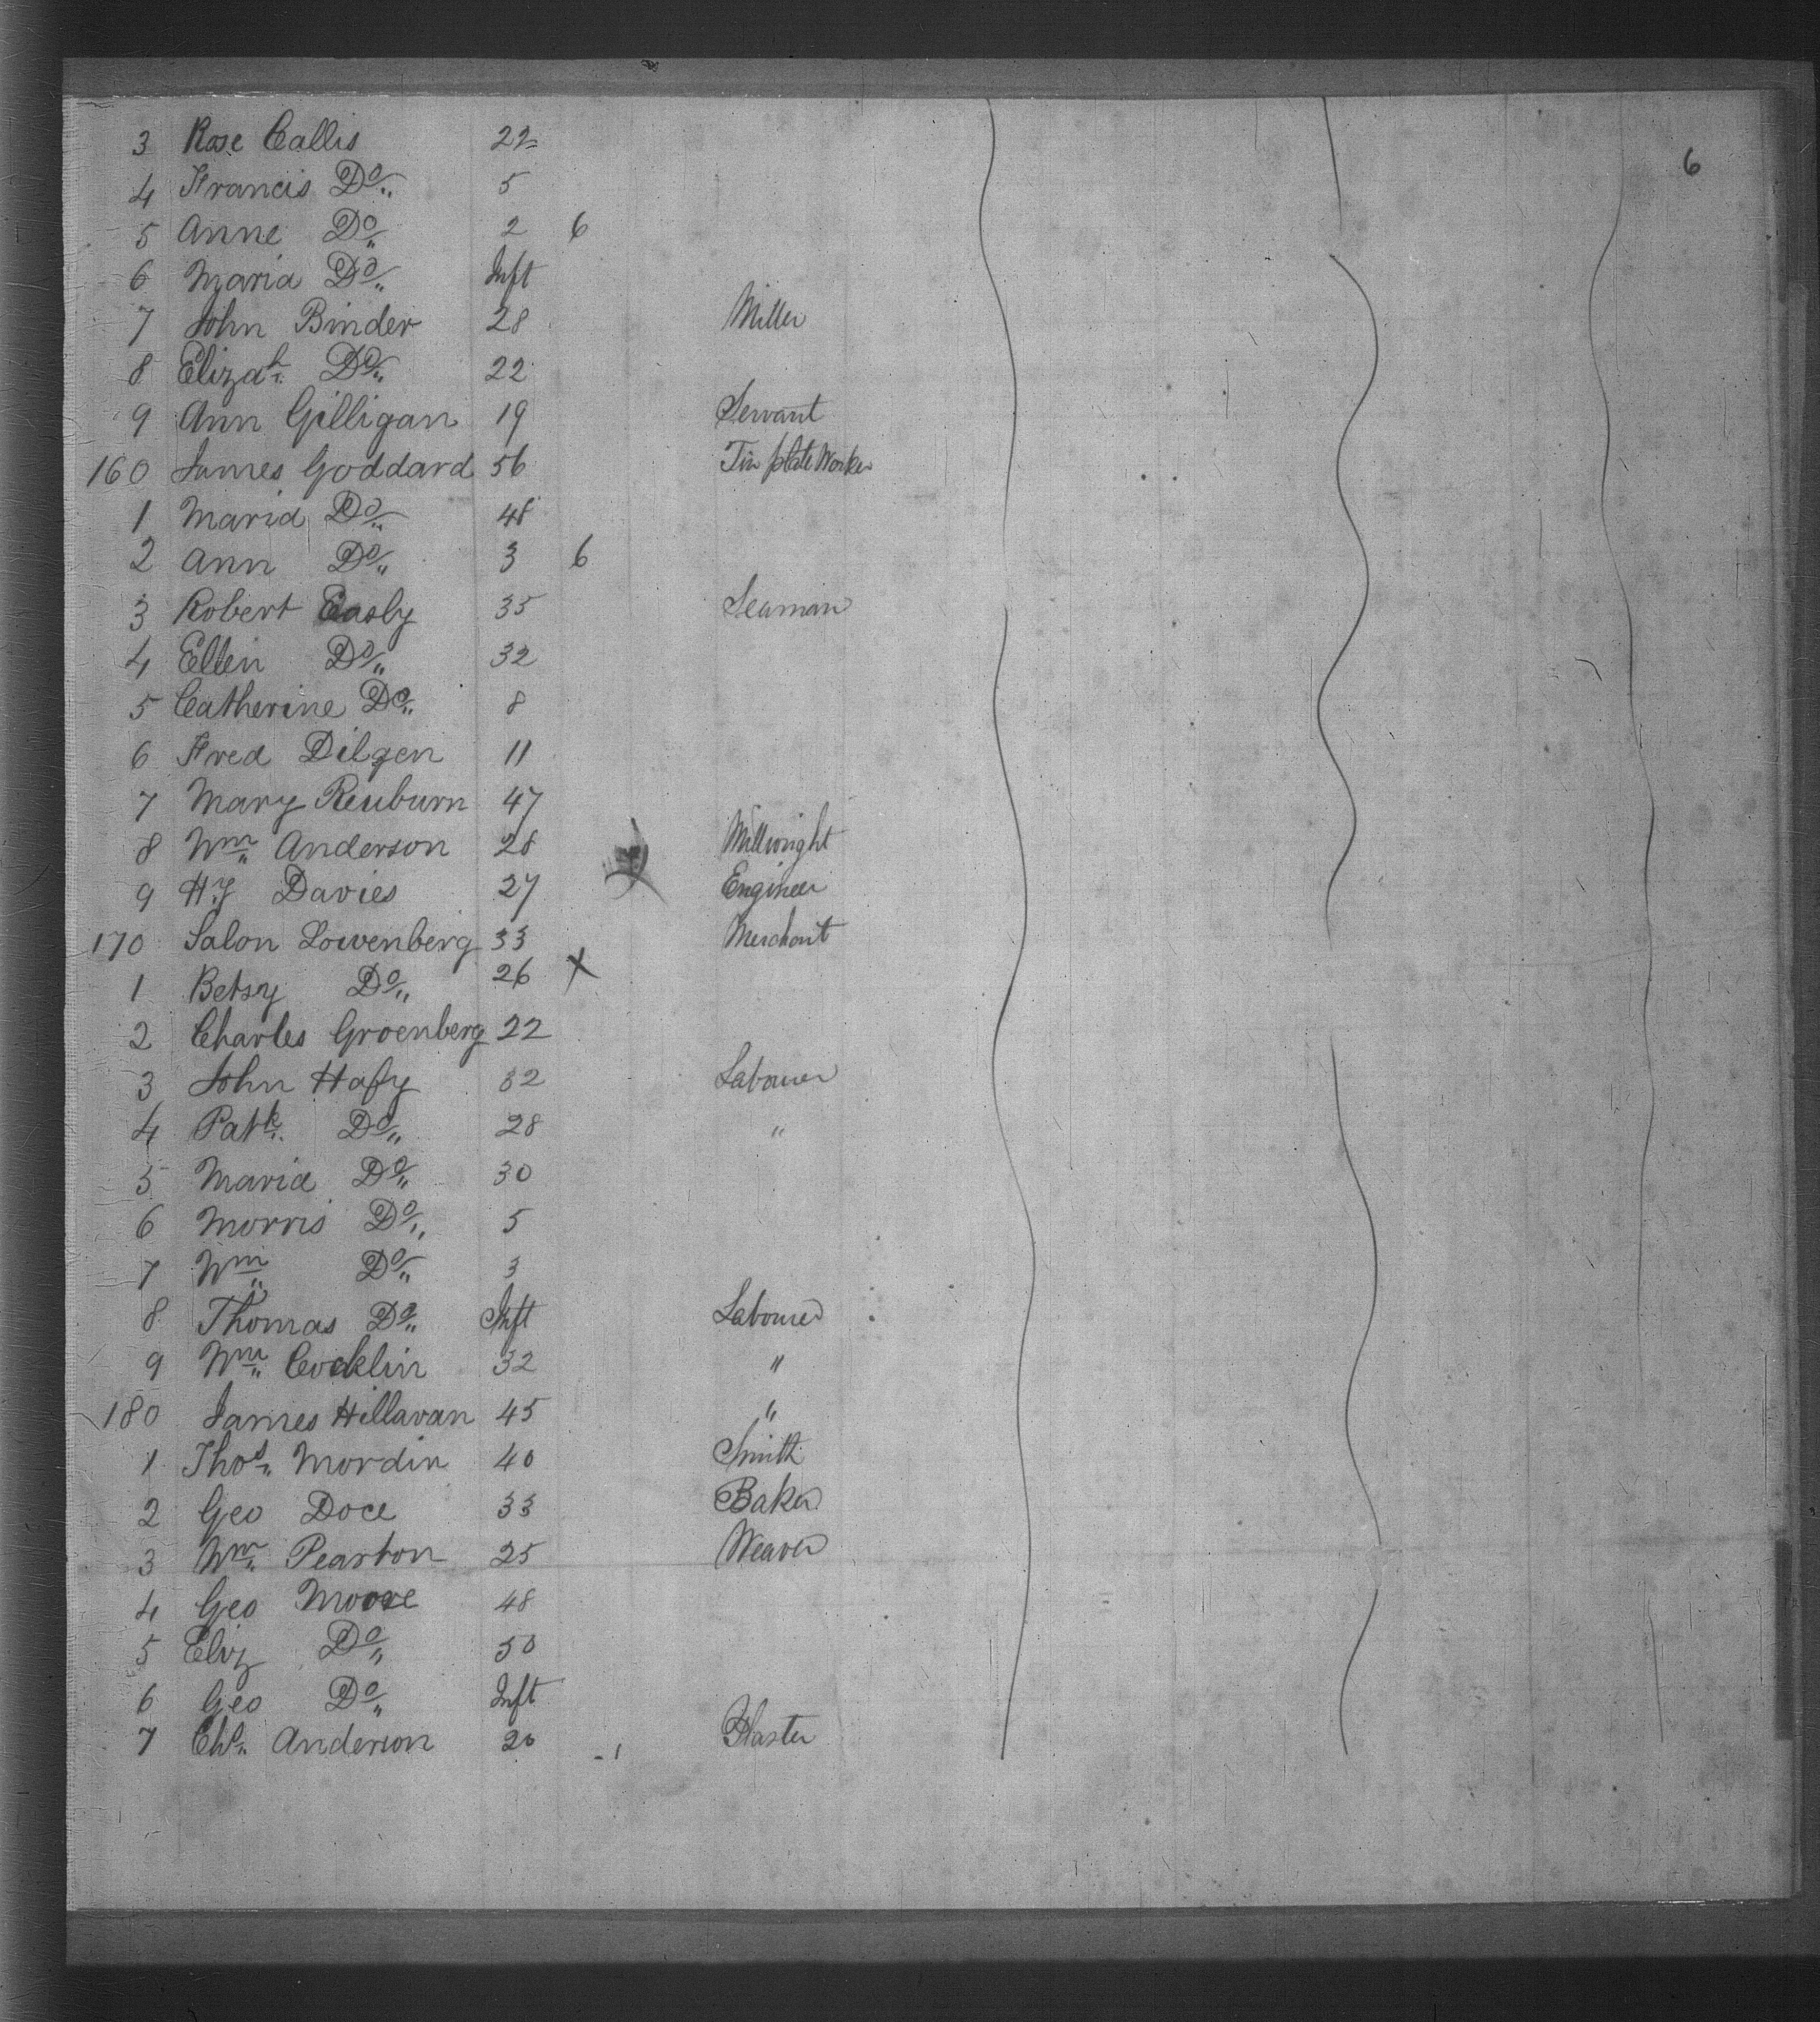 6
3 Rose Callis 22
4 Francis Do 5
5 Anne Do 2 6
6 Maria Do Inft
7 John Binder 28 Miller
8 Elizath Do 22
9 Ann Gilligan 19 Servant
160 James Goddard 56 Tin plate Worker
1 Maria Do 48
2 Ann Do 3 6
3 Robert Easby 35 Seaman
4 Ellen Do 32
5 Catherine Do 8
6 Fred Dilgen 11
7 Mary Reuburn 47
8 Wm Anderson 28 Millwright
9 Hy Davies 27 Engineer
170 Salon Lowenberg 33 Merchant
1 Betsy Do 26 X
2 Charles Groenberg 22
3 John Hafy 32 Labourer
4 Patk Do 28 "
5 Maria Do 30
6 Morris Do 5
7 Wm Do 3
8 Thomas Do Inft Labourer
9 Wm Cocklin 32 "
180 James Hillavan 45 "
1 Thos Mordin 40 Smith
2 Geo Doce 33 Baker
3 Wm Pearton 25 Weaver
4 Geo Moore 48
5 Eliz Do 50
6 Geo Do Inft
7 Chs Anderson 20 - 1